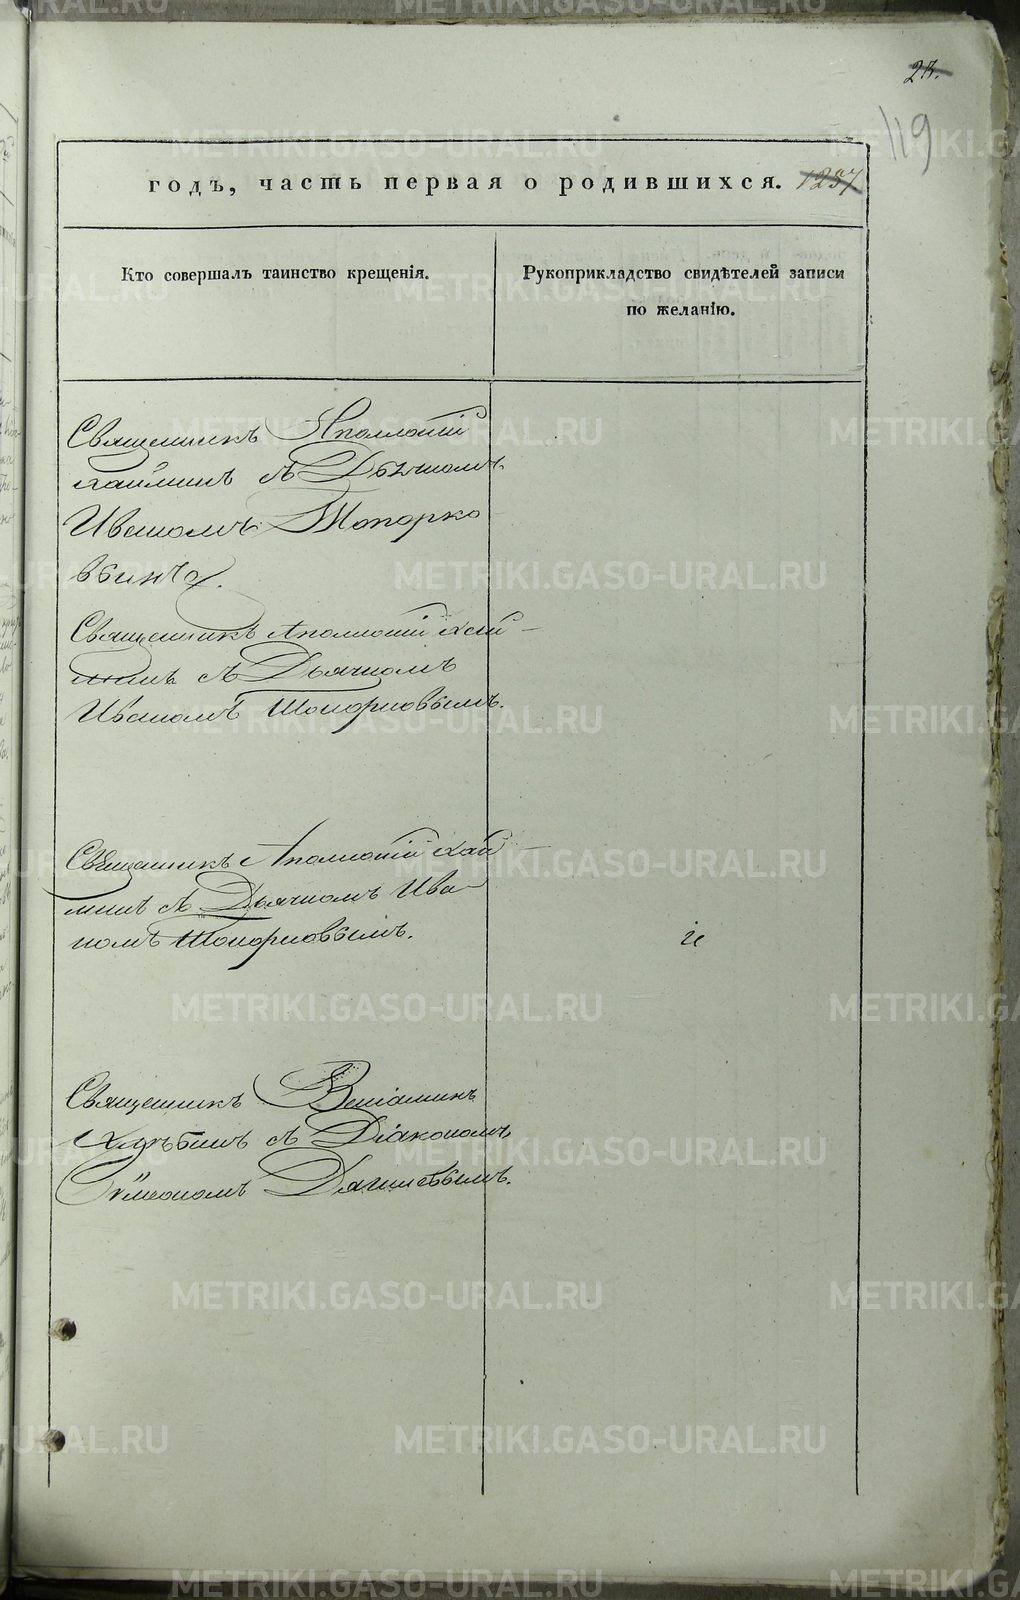 23.
119
годъ, часть первая о родившихся. 1257
Кто совершалъ таинство крещенія.
Рукоприкладство свидѣтелей записи
по желанію.
Священникъ Аполлоній
Хаймин съ Дьячкомъ
Иваномъ Топорко
вымъ.
Священникъ Аполлоній Хай-
минъ съ Дьячкомъ
Иваномъ Топорковымъ.
Священникъ Аполлоній Хай-
минъ съ Дьячкомъ Ива-
номъ Топорковымъ.
Священникъ Веніаминъ
съ Діакономъ
Сѵмеономъ
METRIKI.GASO-URAL.RU